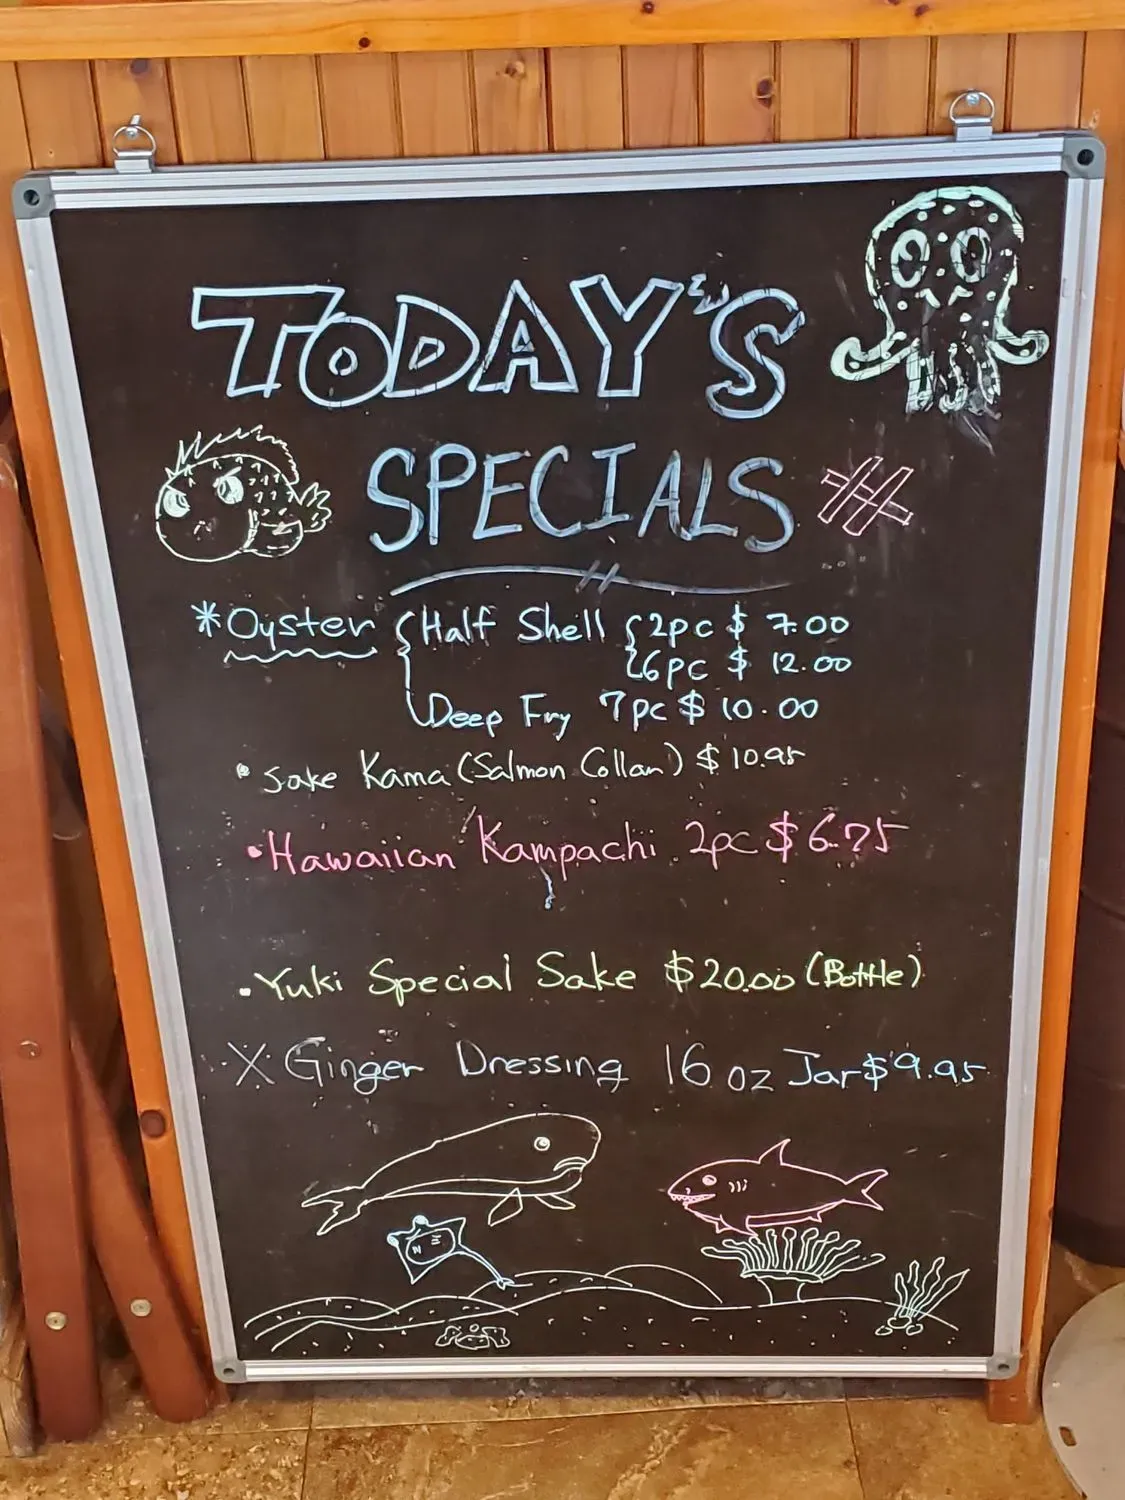 TODAY'S
SPECIALS
*Oyster { Half Shell { 2pc $ 7.00
6pc $ 12.00
Deep Fry 7pc $ 10.00
• Sake Kama (Salmon Collar) $ 10.95
• Hawaiian Kampachi 2pc $ 6.75
• Yuki Special Sake $20.00 (Bottle)
X Ginger Dressing 16 oz Jar $9.95